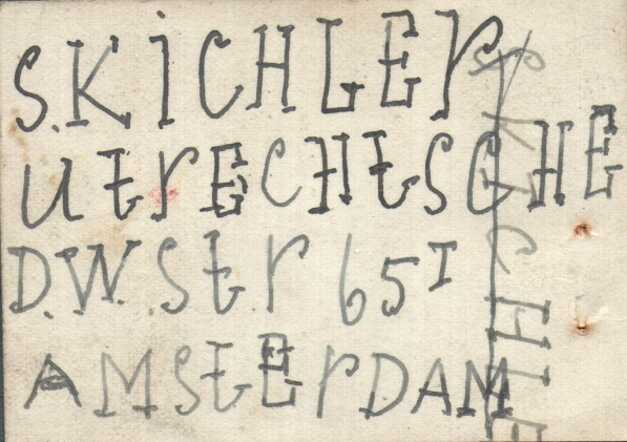 S.KiCHLEr
UtrECHtSCHE
D.W.Str 65I
AMStErDAM